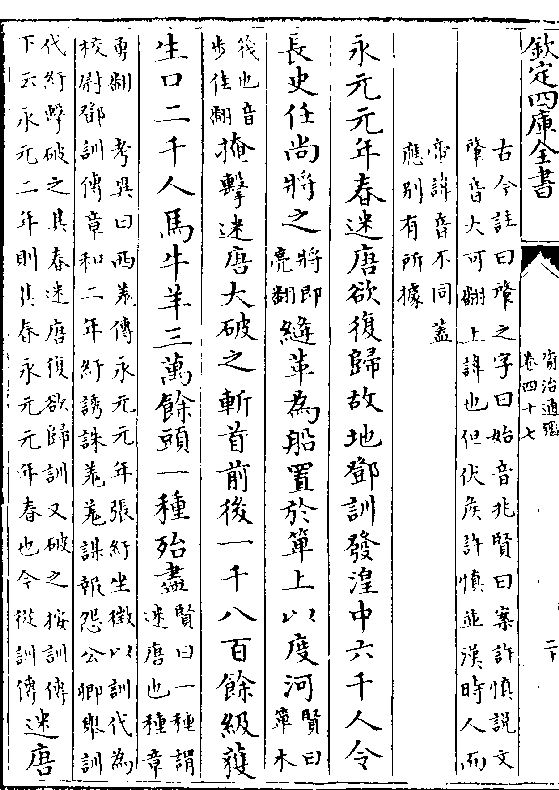 欽定四庫全書
資治通鑑
卷四十七
二十
古今註曰肇之字曰始音兆賢曰案許慎説文
肇音大可翻上諱也但伏矦許慎並漢時人而
帝諱音不同蓋
應别有所據
永元元年春迷唐欲復歸故地鄧訓發湟中六千人令
長史任尚將之將即亮翻縫革為船置於箄上以度河賢曰箄木
筏也音步佳翻掩擊迷唐大破之斬首前後一千八百餘級獲
生口二千人馬牛羊三萬餘頭一種殆盡賢曰一種謂迷唐也種章
勇翻 考異曰西羌傳永元元年張紆坐徵以訓代為
校尉鄧訓傳章和二年紆誘誅羌羌謀報怨公卿舉訓
代紆擊破之其春迷唐復欲歸訓又破之按訓傳
下云永元二年則其春永元元年春也今從訓傳迷唐